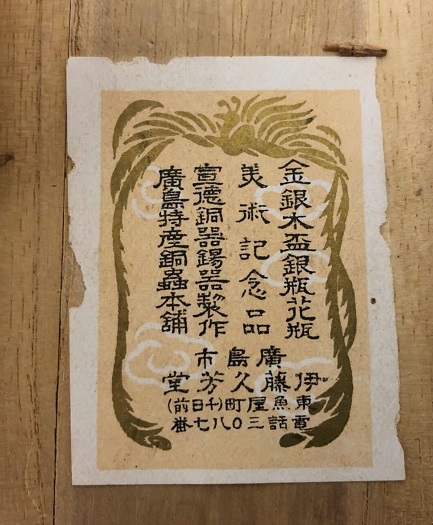 金銀木盃銀瓶花瓶
美術記念品
宣德銅器錫器製作
廣島特産銅蟲本舗
廣島市
伊藤久芳堂
東魚屋町(千日前)
電話三〇八七番